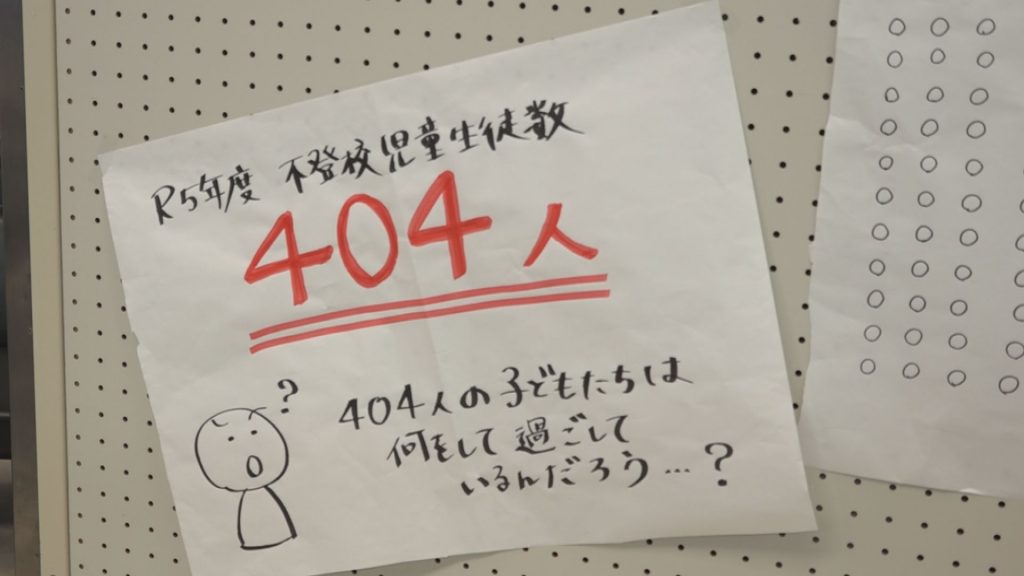 R5年度 不登校児童生徒数
404人
?
404人の子どもたちは
何をして過ごして
いるんだろう…?